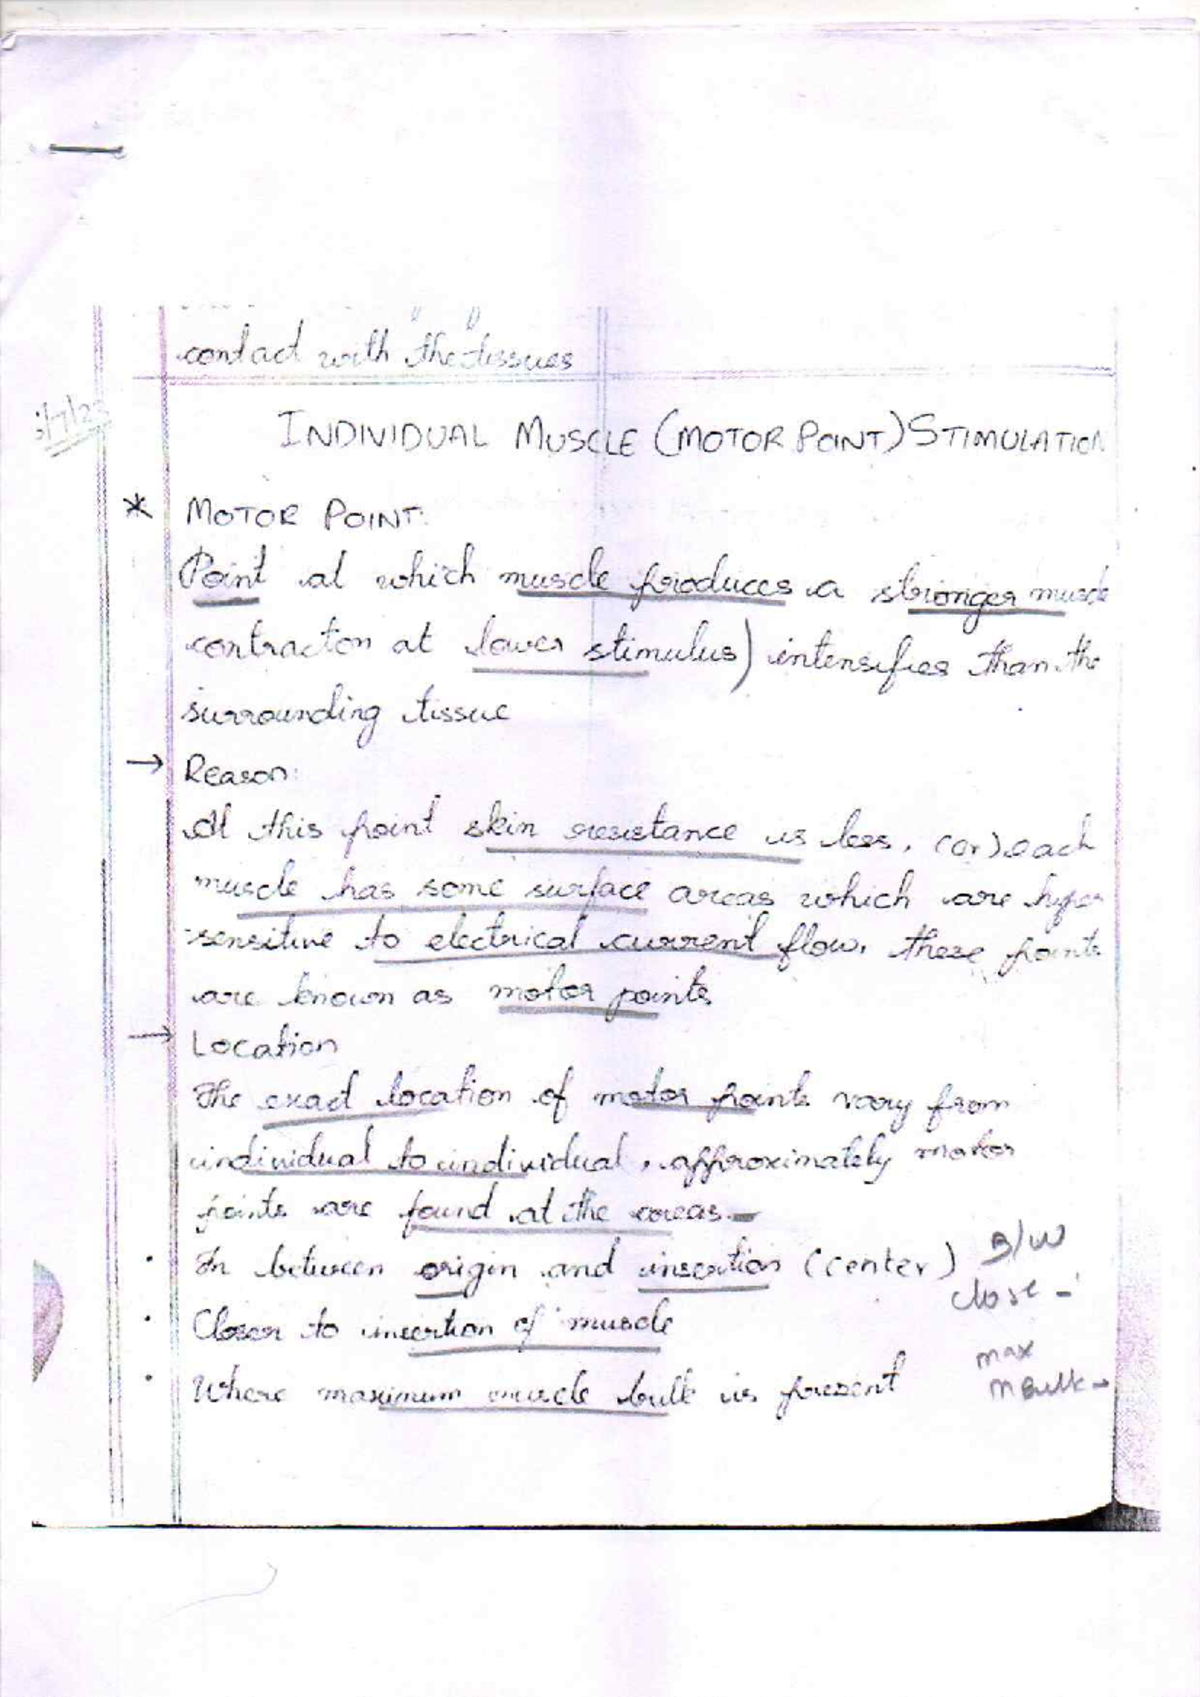 contact with the tissues
INDIVIDUAL MUSCLE (MOTOR POINT) STIMULATION
* MOTOR POINT:
Point at which muscle produces a stronger muscle
contracton at lower stimulus) intensifies than the
surrounding tissue
→ Reason:
At this point skin resistance is less, (or) each
muscle has some surface areas which are hyper
sensitive to electrical current flow, these points
are known as motor points
→ Location
The exact location of motor points vary from
individual to individual, approximately motor
points are found at the areas-
· In between origin and insertion (center) B/W
close -
· Closer to insertion of muscle
max
· Where maximum muscle bulk is present
m Bulk -